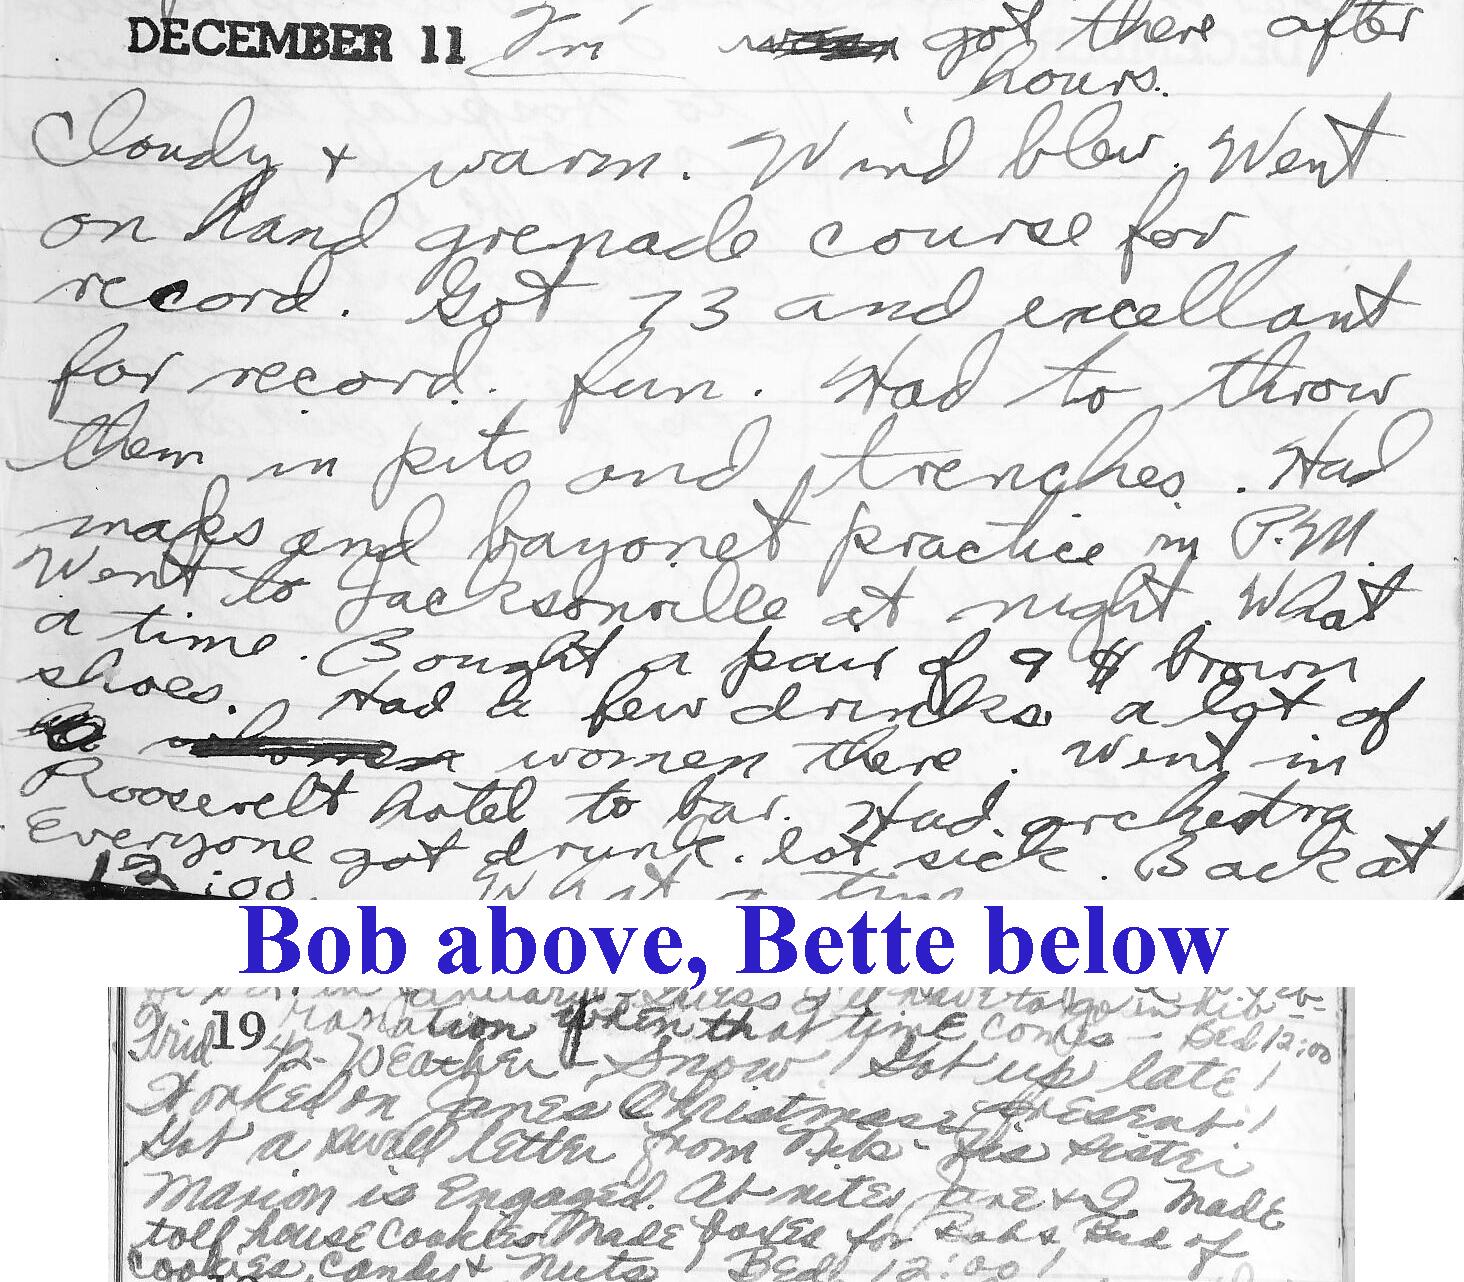 DECEMBER 11 Fri got there after
hours.
Cloudy + warm. Wind blew. Went
on hand grenade course for
record. Got 73 and excellant
for record. fun. Had to throw
them in pits and trenches. Had
maps and bayonet practice in P.M.
Went to Jacksonville at night. What
a time. Bought a pair of 9 $ brown
shoes. Had a few drinks a lot of
women there. Went in
Roosevelt hotel to bar. Had orchestra
Everyone got drunk. lot sick. Back at
12:00. What a time
Bob above, Bette below
in January - Guess I'll have to go in hib-
Frid 19 ranation when that time comes - Bed 12:00
42- Weather - Snow! Got up late!
Worked on Janes Christmas present!
Got a swell letter from - His sister
Marion is Engaged. At nite Jane & I made
toll house cookies. Made boxes for Bob & Bud of
cookies, candy & nuts. Bed 12:00!